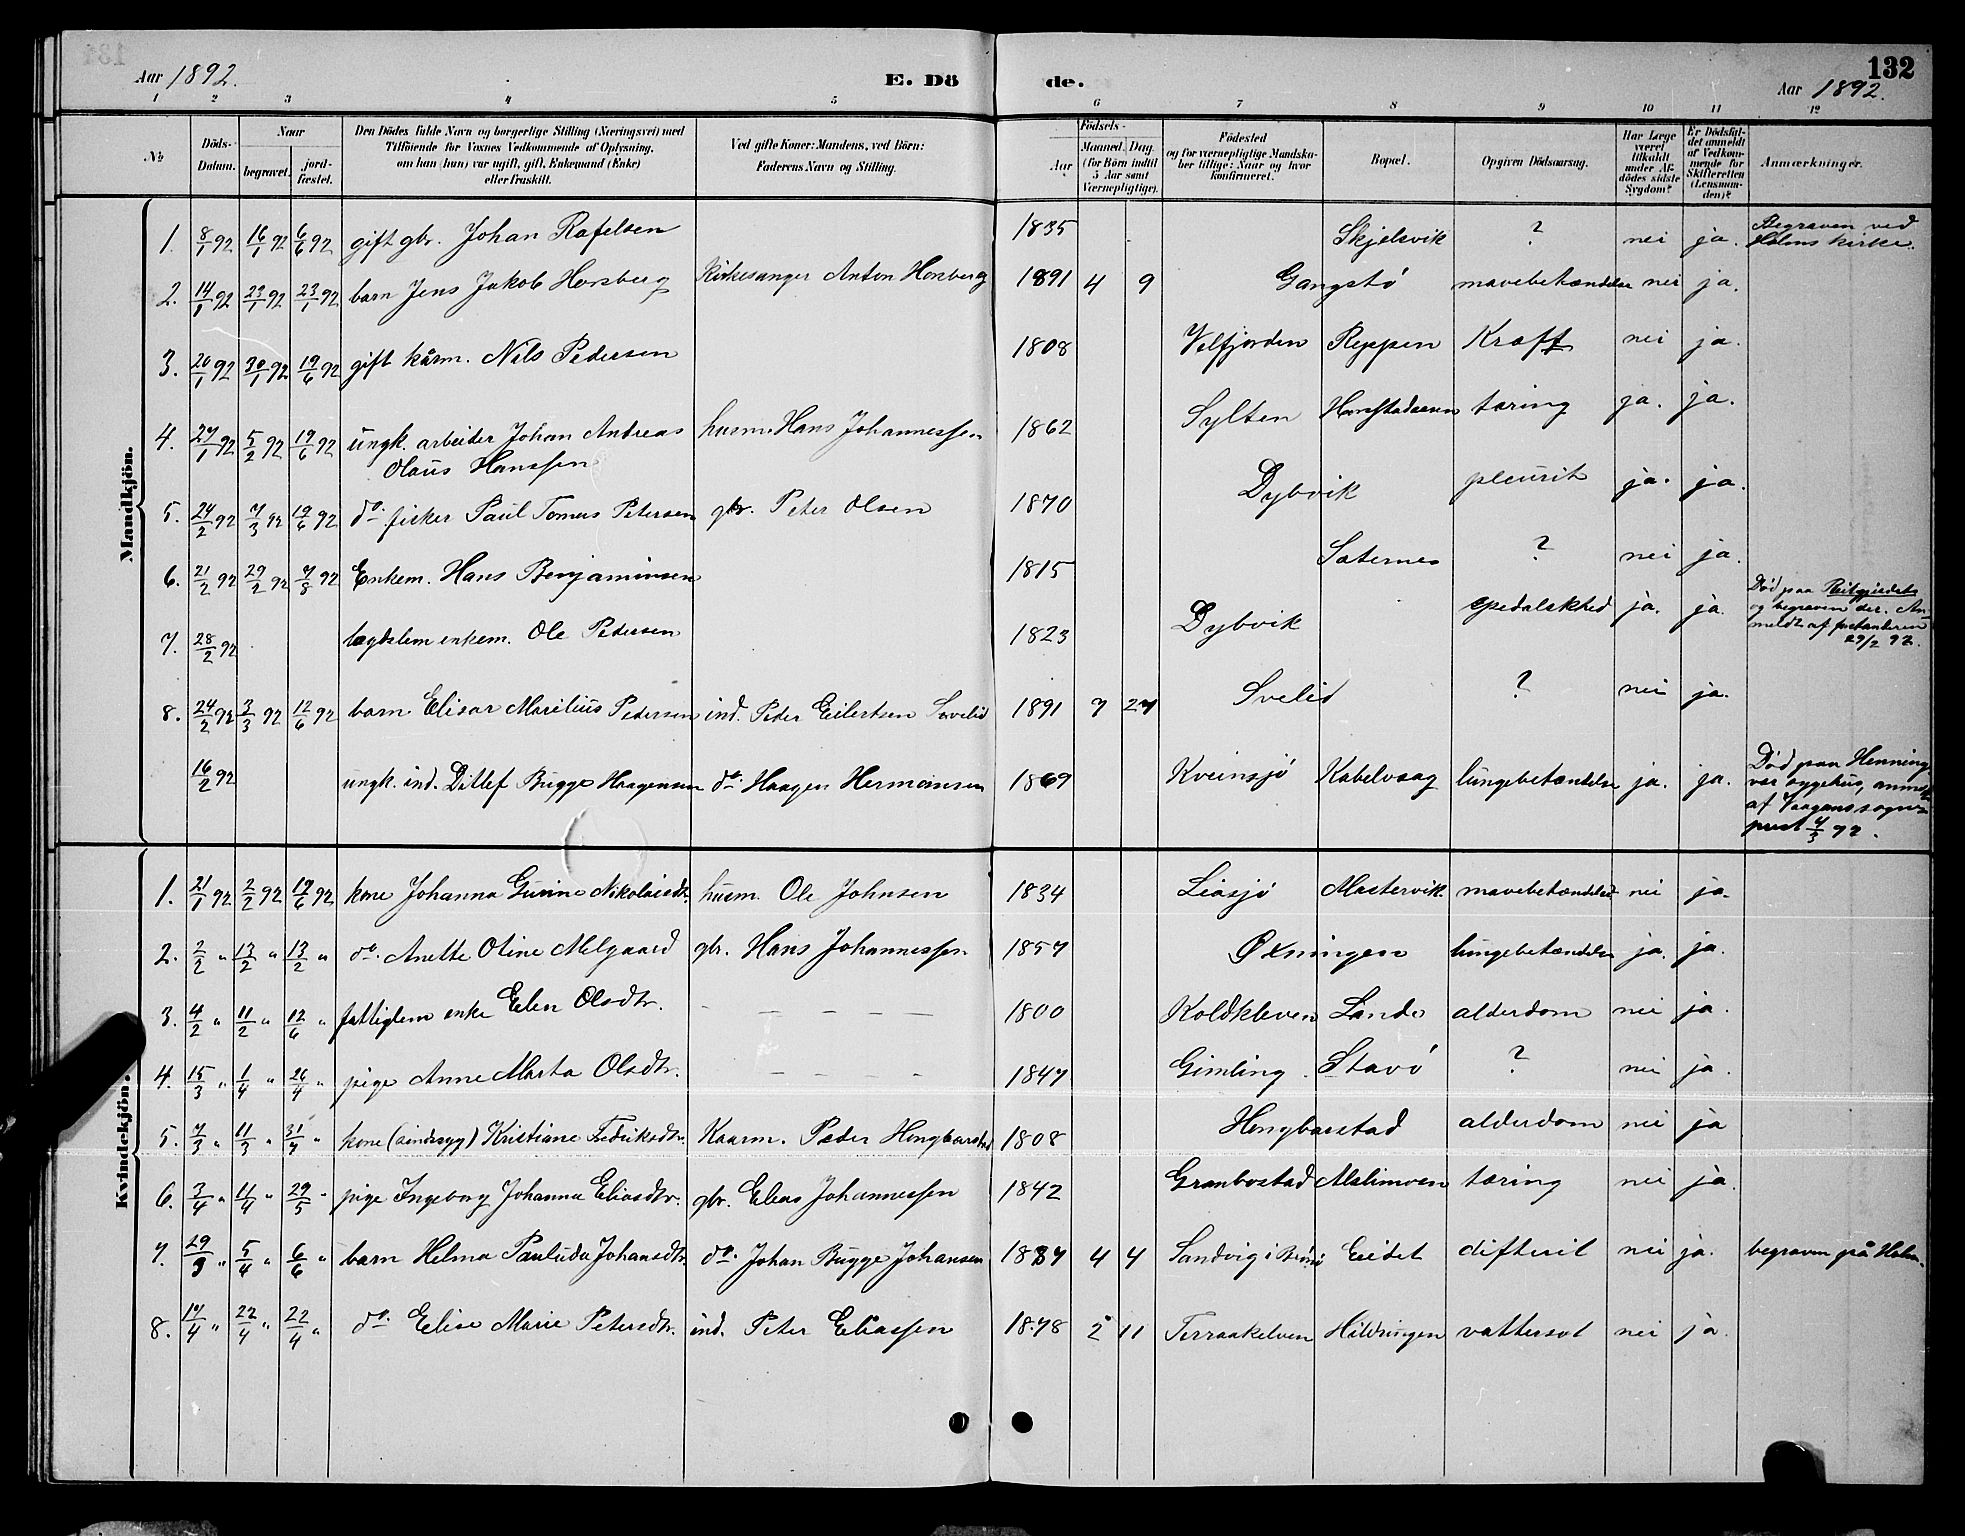 Aar 1892.
E. Dö
de.
132
Aar 1892.
1 2 3 4 5 6 7 8 9 10 11 12
№
Döds-Datum.
Naar
begravet.
jord-fæstet.
Den Dödes fulde Navn og borgerlige Stilling (Næringsvei) med
Tilföiende for Voxnes Vedkommende af Oplysning,
om han (hun) var ugift, gift, Enkemand (Enke)
eller fraskilt.
Ved gifte Koner: Mandens, ved Börn:
Faderens Navn og Stilling.
Födsels-
Aar
Maaned. Dag.
(for Börn indtil
5 Aar samt
Værnepligtige).
Födested
og for værnepligtige Mandska-
ber tillige: Naar og hvor
konfirmeret.
Bopæl.
Opgiven Dödsaarsag.
Har Læge
været
tilkaldt
under Af-
dödes sidste
Sygdom?
Er Dödsfal-
det anmeldt
af Vedkom-
mende for
Skifteretten
(Lensman-
den)?
Anmærkninger.
Mandkjön.
1. 8/1 92 16/1 92 6/6 92 gift gbr. Johan Rafelsen 1835 Skjelsvik ? nei ja. Begraven ved
Holms kirke.
2. 14/1 92 23/1 92 23/1 92 barn Jens Jakob Horsberg Kirkesanger Anton Horsberg 1891 4 9 Gangstö mavebetændelse nei ja.
3. 20/1 92 30/1 92 19/6 92 gift kårm. Nils Pedersen 1808 Velfjorden Reppen Kræft nei ja.
4. 27/1 92 5/2 92 19/6 92 ungk. arbeider Johan Andreas husm. Hans Johannessen 1862 Sylten tæring ja. ja.
Olaus Hanssen
5. 24/2 92 7/3 92 19/6 92 do. fisker Paul Tomas Petersen gbr. Peter Olsen 1870 Dybvik pleurit ja. ja.
6. 21/2 92 29/2 92 7/8 92 Enkem. Hans Benjaminsen 1815 Sæternes ? nei ja.
7. 28/2 92 lægdslem enkem. Ole Pedersen 1823 Dybvik spedalskhed ja. ja. Död paa Reitgjerdet
og begraven der. An-
meldt af forstanderen
29/2 92.
8. 24/2 92 3/3 92 12/6 92 barn Elisar Marelius Pedersen ind. Peder Eilertsen Svelid 1891 7 27 Svelid ? nei ja.
16/2 92 ungk. ind. Ditlef Bugge Haagensen do. Haagen Hermansen 1869 Kveinsjö Kabelvaag lungebetændelse ja. ja. Död paa Hennings-
vær sygehus, anmeldt
af Vaagans sogne-
prest 4/3 92.
Kvindekjön.
1. 21/1 92 2/2 92 19/6 92 kone Johanna Gurine Nikolaisdtr. husm. Ole Johnsen 1834 Liasjö Mastervik mavebetændelse nei ja.
2. 2/2 " 13/2 " 13/2 " do. Anette Oline Melgaard gbr. Hans Johannessen 1857 Øxningen lungebetændelse ja. ja.
3. 4/2 " 11/2 " 12/6 " fattiglem enke Elen Olsdtr. – – – – – 1800 Koldkleven Lande alderdom nei ja.
4. 15/3 " 1/4 " 26/4 " pige Anne Marta Olsdtr. – – – – 1847 Gimling Stavö ? nei ja.
5. 7/3 " 11/3 " 31/7 " kone (sindssyg) Kristiane Fredriksdtr. Kaarm. Peder Hongbarstad 1808 Hongbarstad alderdom nei ja
6. 3/4 " 11/4 " 29/5 " pige Ingeborg Johanna Eliasdtr. gbr. Elias Johannessen 1842 Granbostad tæring nei ja.
7. 29/3 " 5/4 " 6/6 " barn Helma Paulida Johansdtr. do. Johan Bugge Johansen 1887 4 4 Sandvig i Brönö Eidet difterit nei ja. begraven på Holm.
8. 17/4 " 22/4 " 22/4 " do. Elise Marie Petersdtr. ind. Peter Eliassen 1878 2 11 Terraakelven Hildringen vattersot nei ja.